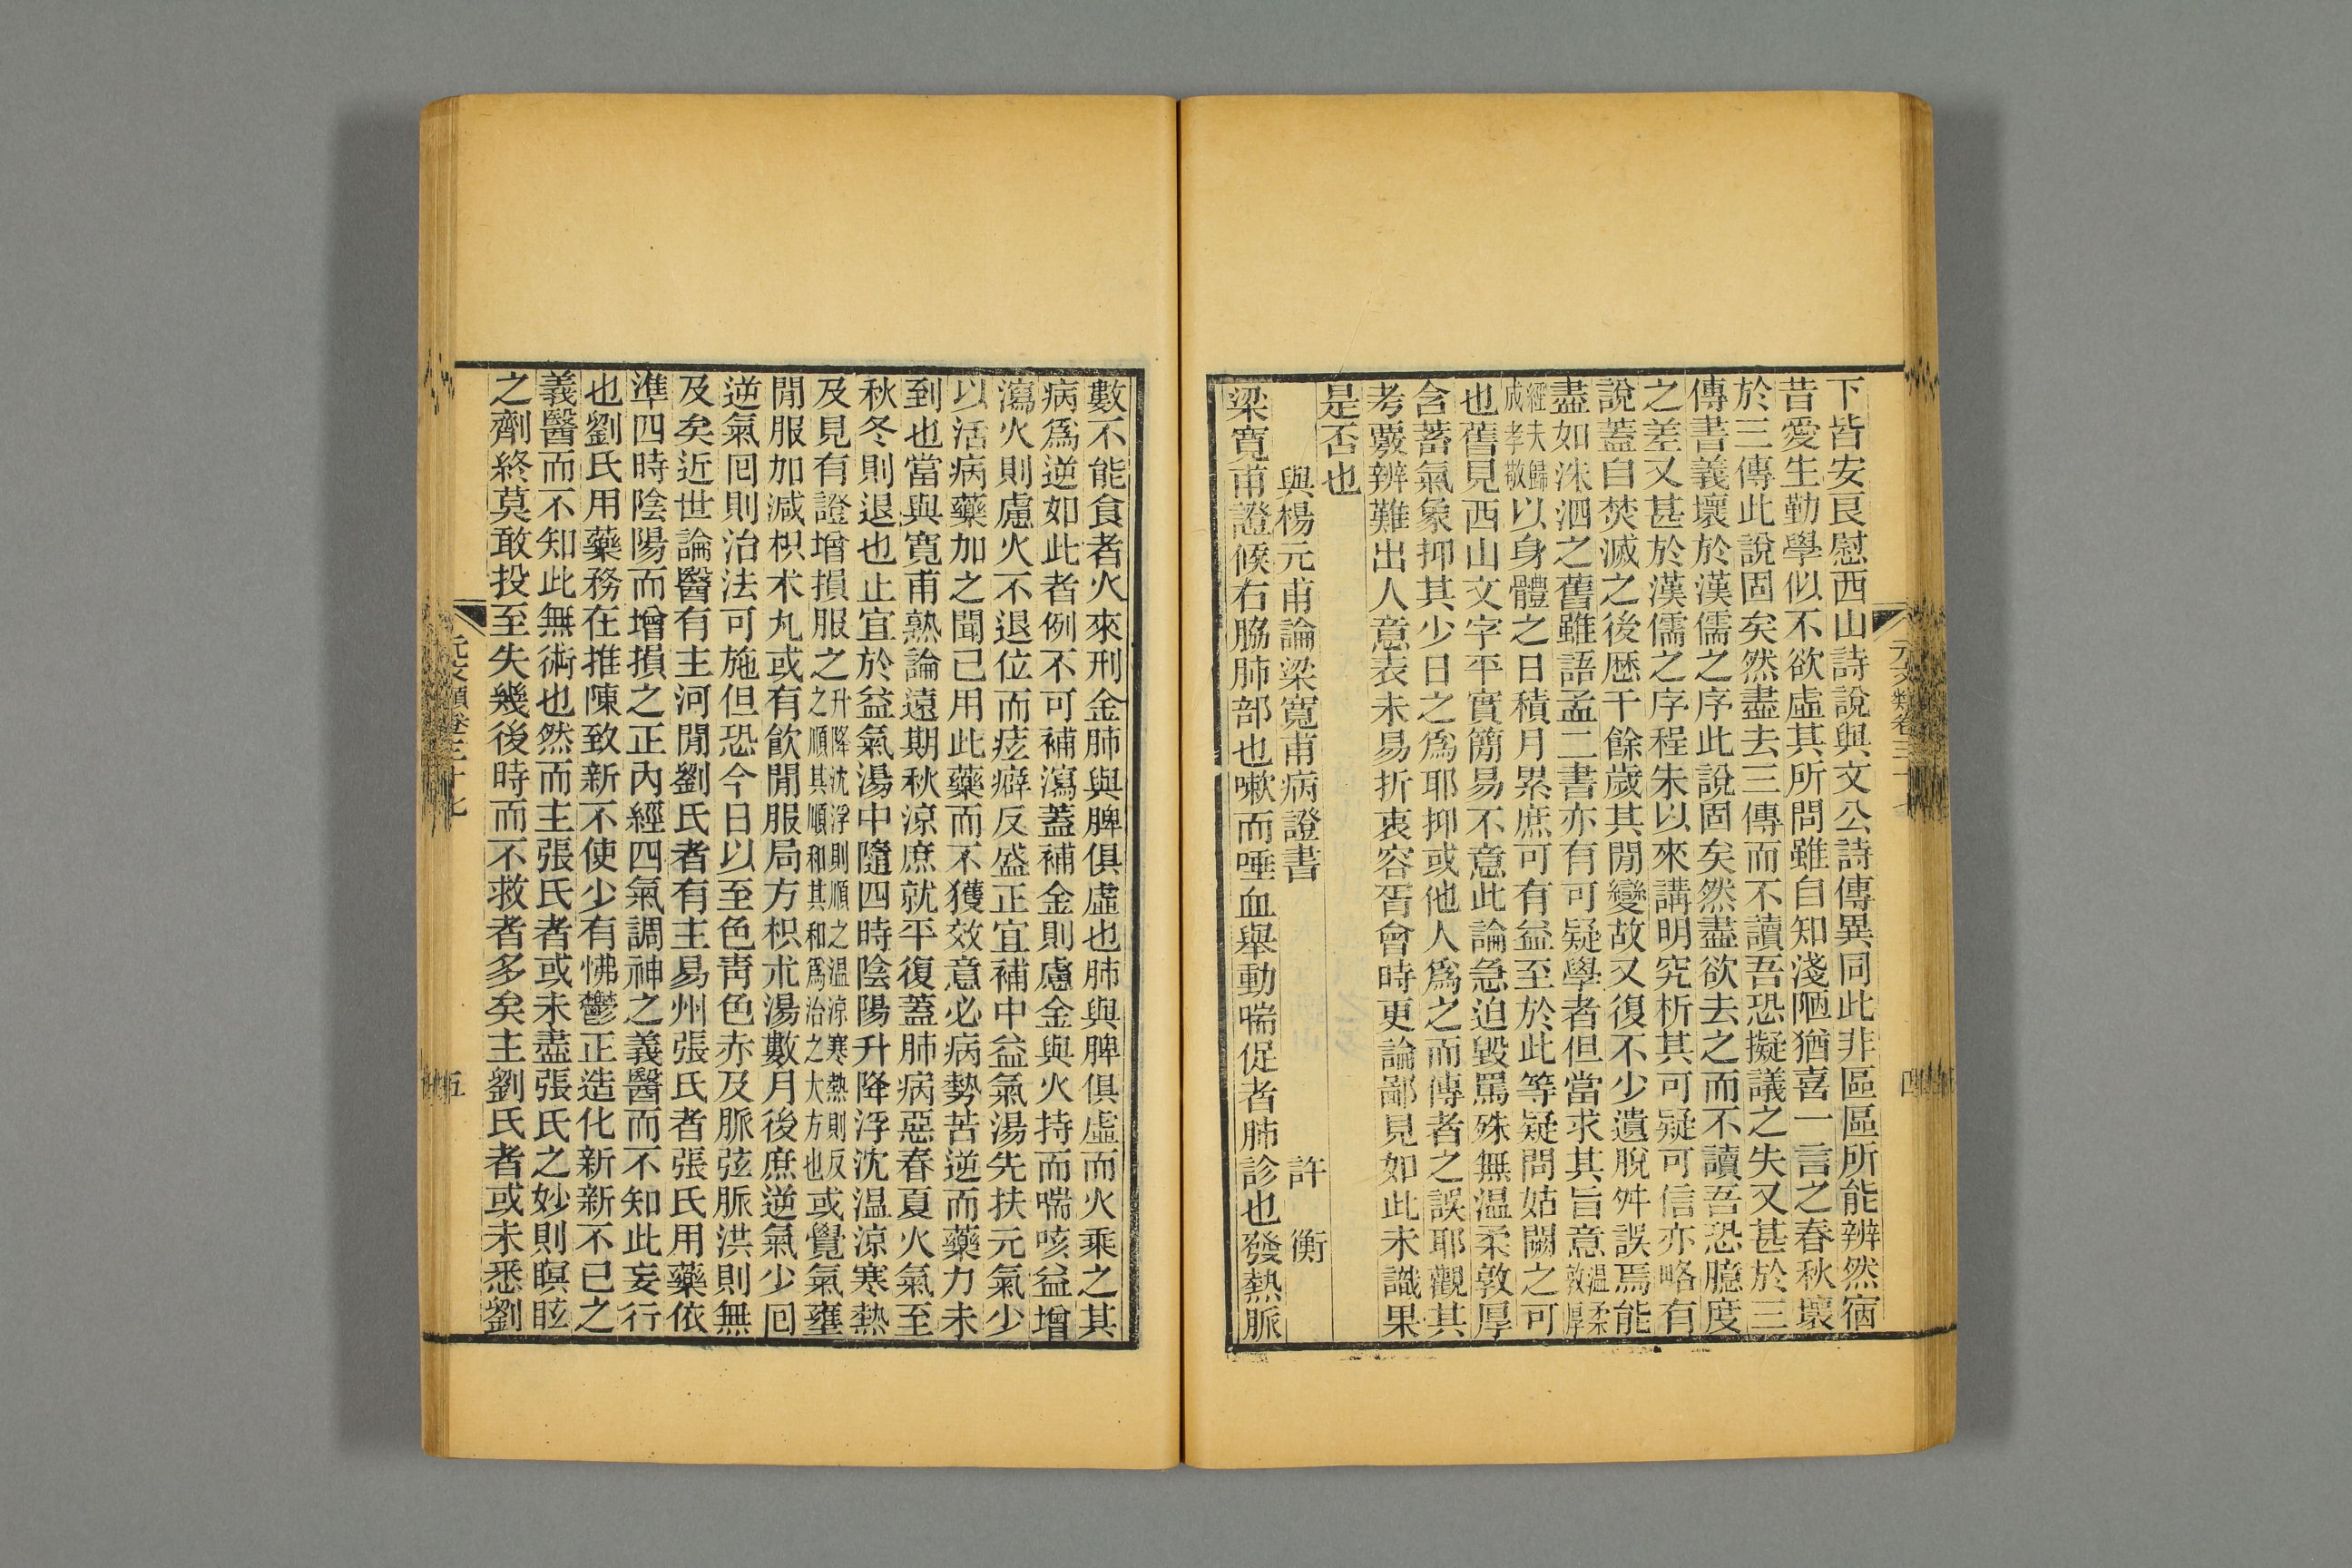 元文類卷三十七
四
下皆安良慰西山詩說與文公詩傳異同此非區區所能辨然宿
昔愛生勤學似不欲虛其所問雖自知淺陋猶喜一言之春秋壞
於三傳此說固矣然盡去三傳而不讀吾恐擬議之失又甚於三
傳書義壞於漢儒之序此說固矣然盡欲去之而不讀吾恐臆度
之差又甚於漢儒之序程朱以來講明究析其可疑可信亦略有
說蓋自焚滅之後歷千餘歲其閒變故又復不少遺脫舛誤焉能
盡如洙泗之舊雖語孟二書亦有可疑學者但當求其旨意溫柔敦厚
經夫歸成孝敬以身體之日積月累庶可有益至於此等疑問姑闕之可
也舊見西山文字平實簡易不意此論急迫毀罵殊無溫柔敦厚
含蓄氣象抑其少日之爲耶抑或他人爲之而傳者之誤耶觀其
考覈辨難出人意表未易折衷容胥會時更論鄙見如此未識果
是否也
與楊元甫論梁寬甫病證書 許衡
梁寬甫證候右脇肺部也嗽而唾血舉動喘促者肺診也發熱脈
數不能食者火來刑金肺與脾俱虛也肺與脾俱虛而火乘之其
病爲逆如此者例不可補瀉蓋補金則慮金與火持而喘咳益增
瀉火則慮火不退位而痃癖反盛正宜補中益氣湯先扶元氣少
以活病藥加之聞已用此藥而不獲效意必病勢苦逆而藥力未
到也當與寬甫熟論遠期秋涼庶就平復蓋肺病惡春夏火氣至
秋冬則退也止宜於益氣湯中隨四時陰陽升降浮沈溫涼寒熱
及見有證增損服之升降沈浮則順之溫涼寒熱則反之順其順和其和爲治之大方也或覺氣壅
閒服加減枳朮丸或有飮閒服局方枳朮湯數月後庶逆氣少回
逆氣回則治法可施但恐今日以至色靑色赤及脈弦脈洪則無
及矣近世論醫有主河閒劉氏者有主易州張氏者張氏用藥依
準四時陰陽而增損之正內經四氣調神之義醫而不知此妄行
也劉氏用藥務在推陳致新不使少有怫鬱正造化新新不已之
義醫而不知此無術也然而主張氏者或未盡張氏之妙則瞑眩
之劑終莫敢投至失幾後時而不救者多矣主劉氏者或未悉劉
元文類卷三十七
五